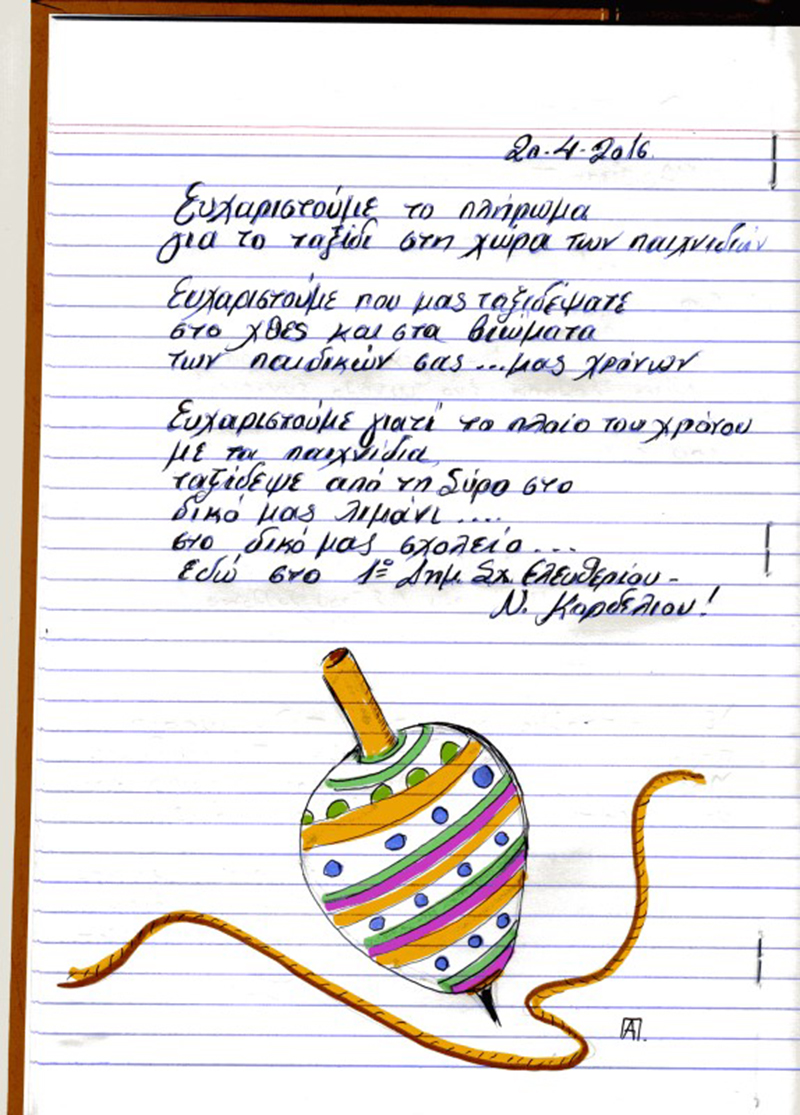 20-4-2016.
Ευχαριστούμε το πλήρωμα
για το ταξίδι στη χώρα των παιχνιδιών
Ευχαριστούμε που μας ταξιδέψατε
στο χθες και στα βιώματα
των παιδικών σας...μας χρόνων
Ευχαριστούμε γιατί το πλοίο του χρόνου
με τα παιχνίδια
ταξίδεψε από τη Σύρο στο
δικό μας λιμάνι....
στο δικό μας σχολείο...
Εδώ στο 1ο Δημ. Σχ. Ελευθερίου-
Ν. Κορδελιού!
ΑΠ.